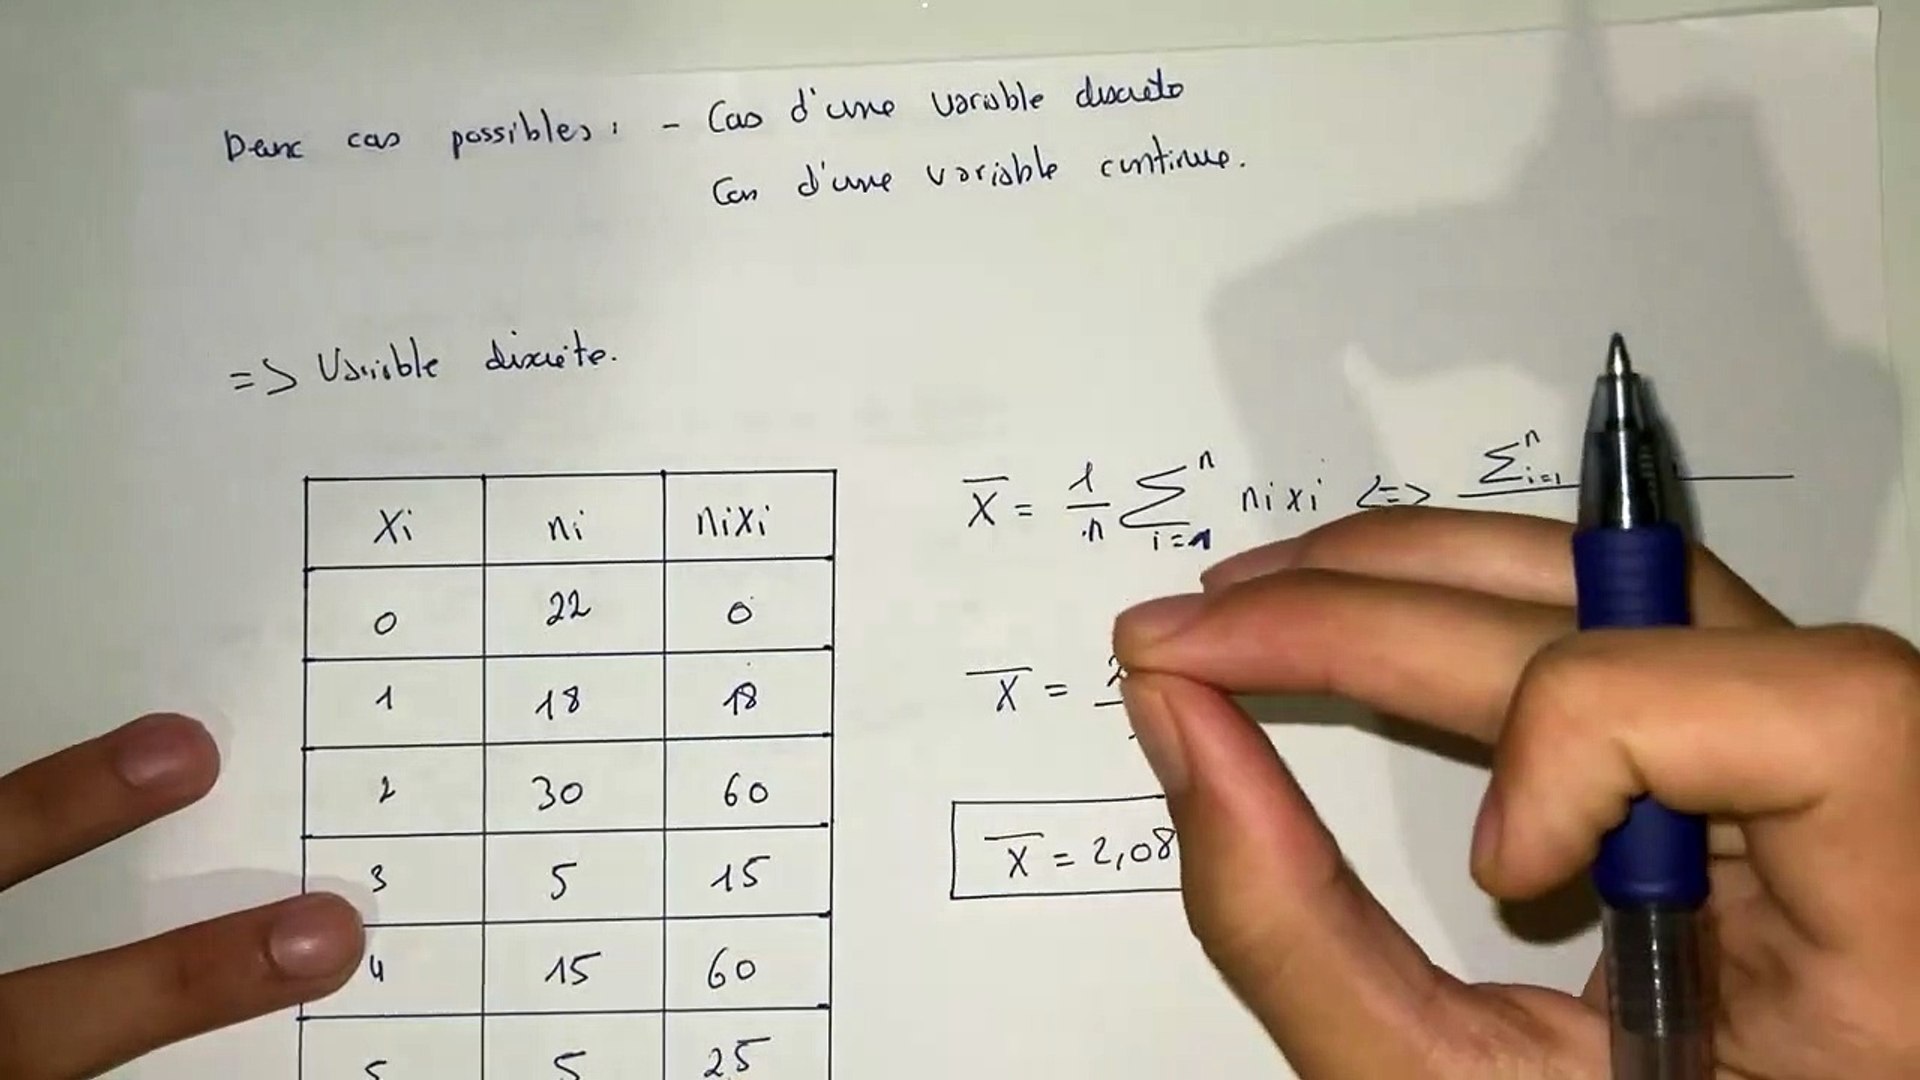 Deux cas possibles : - Cas d'une variable discrète
Cas d'une variable continue.
=> Variable discrète.
Xi ni niXi
0 22 0
1 18 18
2 30 60
3 5 15
4 15 60
5 5 25
X̄ = 1/n Σ i=1 n nixi <=> Σ i=1 n
X̄ = 2
X̄ = 2,08